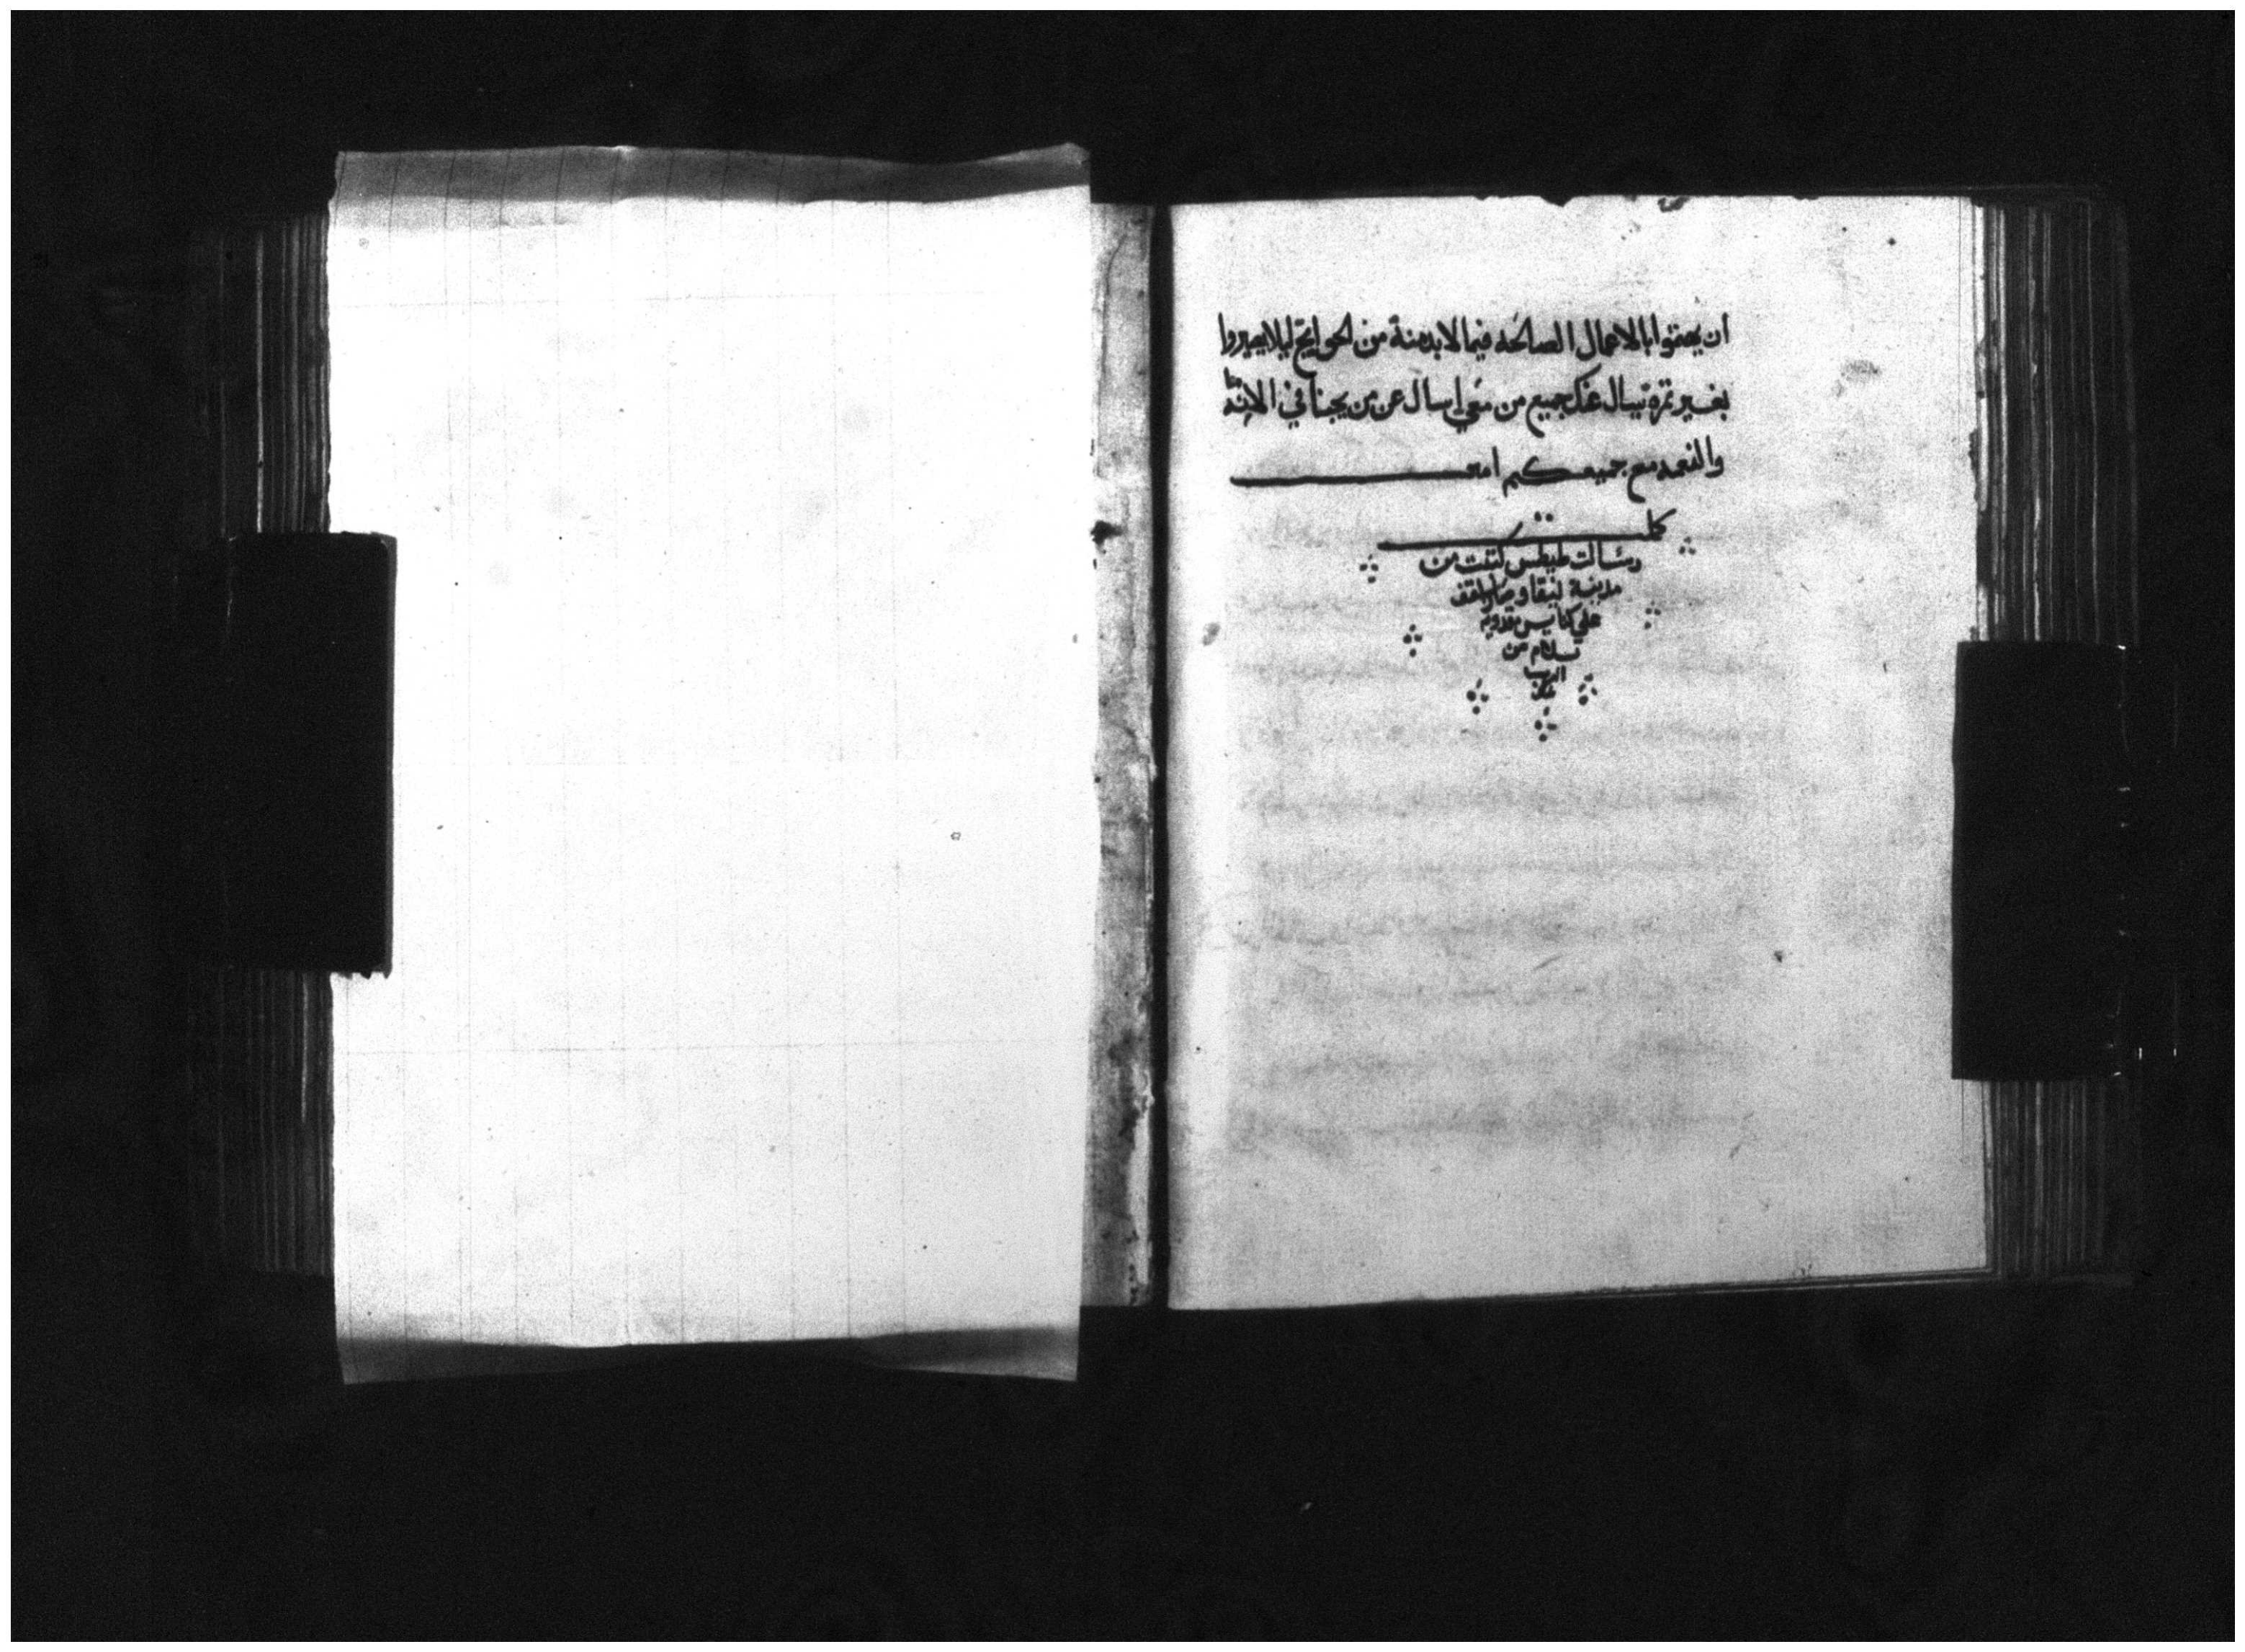 ان يعتنوا بالاعمال الصالحه فيما لابد منه من الحوايج ليلا يصيروا
بغير ثمرة يسال عنك جميع من معي اسال عن من يحبنا في الامانه
والنعمه مع جميعكم امين
كملت
رسالت طيطس كتبت من
مدينة نيقا
على كنايس
سلام من
الرب